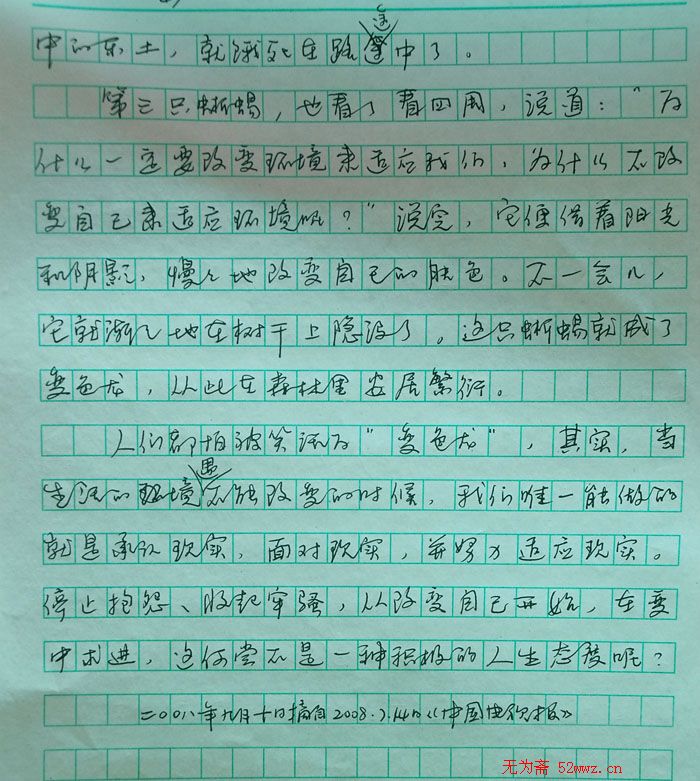 途
中的乐土，就饿死在路途中了。
第三只蜥蜴，也看了看四周，说道：“为
什么一定要改变环境来适应我们，为什么不改
变自己来适应环境呢？”说完，它便借着阳光
和阴影，慢々地改变自己的肤色。不一会儿，
它就渐々地在树干上隐没了。这只蜥蜴就成了
变色龙，从此在森林里安居繁衍。
人们都怕被笑话为“变色龙”，其实，当
生活的环境不能改变的时候，我们唯一能做的
就是承认现实，面对现实，并努力适应现实。
停止抱怨、收起牢骚，从改变自己开始，在变
中求进，这何尝不是一种积极的人生态度呢？
二〇〇八年九月十日摘自2008.7.14日《中国电视报》
无为斋 52wwz.cn